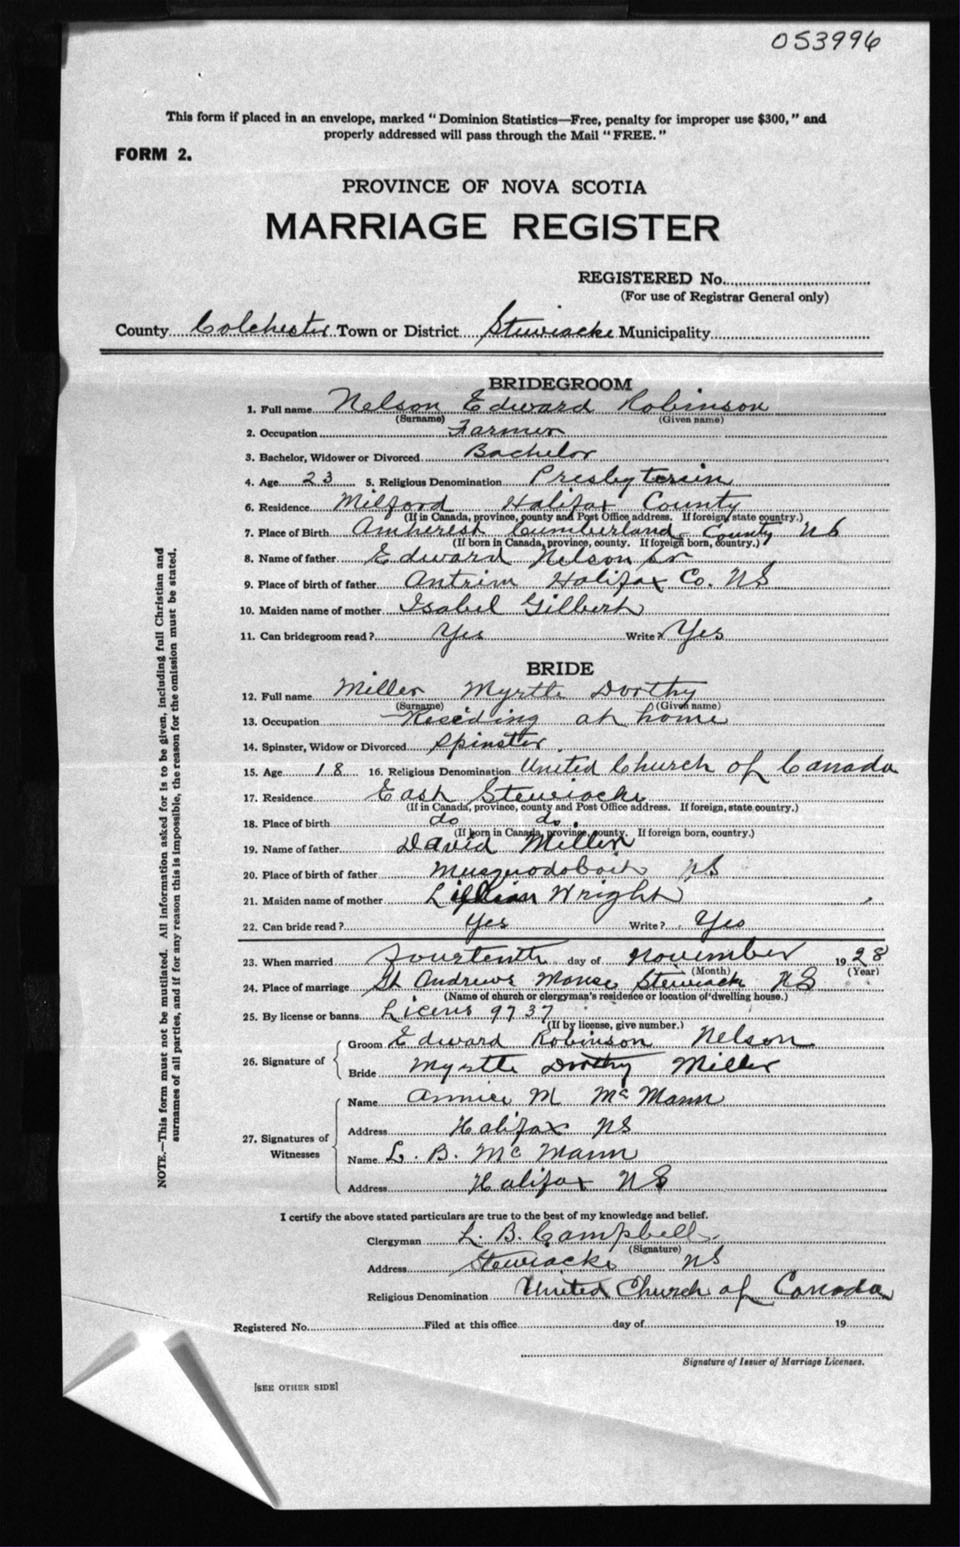 053996
This form if placed in an envelope, marked "Dominion Statistics—Free, penalty for improper use $300," and
properly addressed will pass through the Mail "FREE."
FORM 2.
PROVINCE OF NOVA SCOTIA
MARRIAGE REGISTER
REGISTERED No.
(For use of Registrar General only)
County Colchester Town or District Stewiacke Municipality
BRIDEGROOM
1. Full name Nelson Edward Robinson
(Surname) (Given name)
2. Occupation Farmer
3. Bachelor, Widower or Divorced Bachelor
4. Age 23 5. Religious Denomination Presbyterian
6. Residence Milford Halifax County
(If in Canada, province, county and Post Office address. If foreign, state country.)
7. Place of Birth Amherst Cumberland County NS
(If born in Canada, province, county. If foreign born, country.)
8. Name of father Edward Nelson sr
9. Place of birth of father Antrim Halifax Co. NS
10. Maiden name of mother Isabel Gilbert
11. Can bridegroom read? Yes Write? Yes
BRIDE
12. Full name Miller Myrtle Dorthy
(Surname) (Given name)
13. Occupation Reseding at home
14. Spinster, Widow or Divorced Spinster
15. Age 18 16. Religious Denomination United Church of Canada
17. Residence East Stewiacke
(If in Canada, province, county and Post Office address. If foreign, state country.)
18. Place of birth do do
(If born in Canada, province, county. If foreign born, country.)
19. Name of father David Miller
20. Place of birth of father Musquodoboit NS
21. Maiden name of mother Lillian Wright
22. Can bride read? Yes Write? Yes
23. When married fourteenth day of November 1928
(Month) (Year)
24. Place of marriage St Andrews Manse Stewiacke NS
(Name of church or clergyman's residence or location of dwelling house.)
25. By license or banns Licens 9737
(If by license, give number.)
26. Signature of Groom Edward Robinson Nelson
Bride Myrtle Dorthy Miller
27. Signatures of Witnesses Name Annie M McMann
Address Halifax NS
Name L. B. McMann
Address Halifax NS
I certify the above stated particulars are true to the best of my knowledge and belief.
Clergyman L. B. Campbell
(Signature)
Address Stewiacke NS
Religious Denomination United Church of Canada
Registered No. Filed at this office day of 19
Signature of Issuer of Marriage Licenses.
[SEE OTHER SIDE]
NOTE.—This form must not be mutilated. All information asked for is to be given, including full Christian and
surnames of all parties, and if for any reason this is impossible, the reason for the omission must be stated.